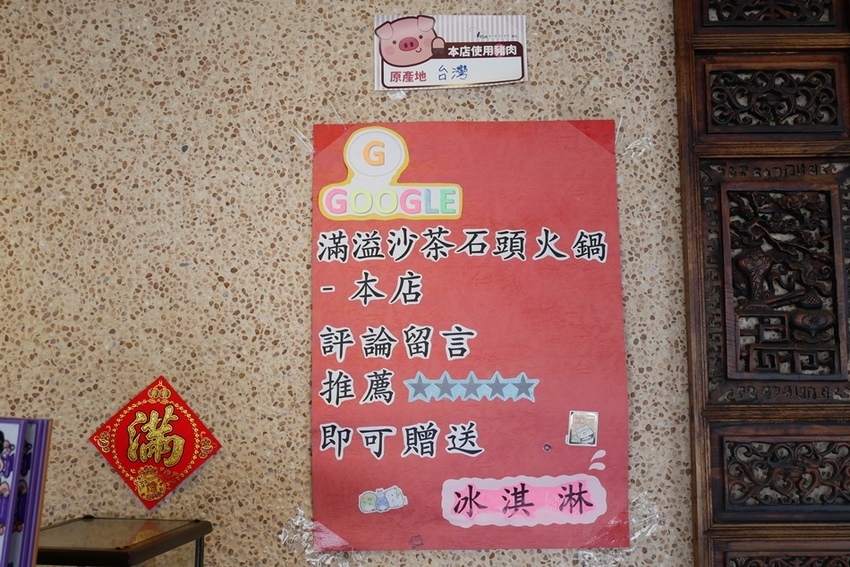 本店使用豬肉
原產地 台灣
G
GOOGLE
滿溢沙茶石頭火鍋
- 本店
評論留言
推薦★★★★★
即可贈送
冰淇淋
滿